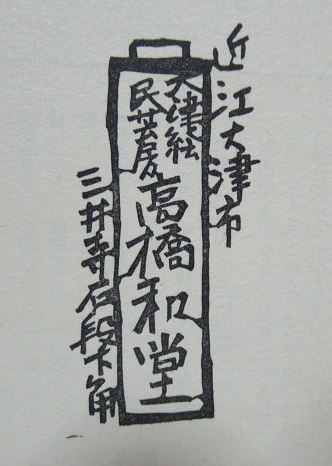 近江大津市
大津絵
民芸房
高橋和堂
三井寺石段下角